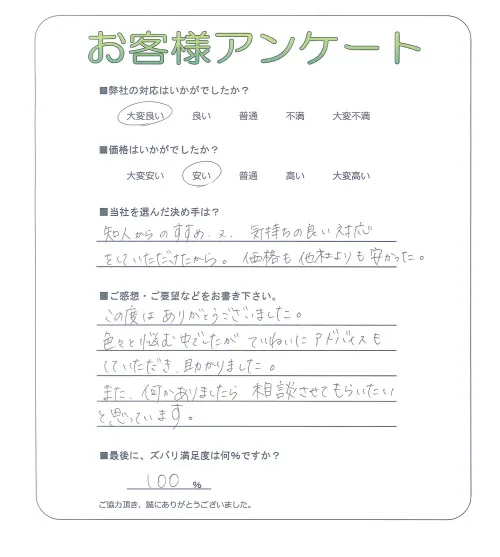 お客様アンケート
■弊社の対応はいかがでしたか？
大変良い 良い 普通 不満 大変不満
■価格はいかがでしたか？
大変安い 安い 普通 高い 大変高い
■当社を選んだ決め手は？
知人からのすすめ、又、気持ちの良い対応
をしていただけたから。価格も他社よりも安かった。
■ご感想・ご要望などをお書き下さい。
この度はありがとうございました。
色々と悩む中でしたがていねいにアドバイスも
していただき、助かりました。
また、何かありましたら相談させてもらいたい
と思っています。
■最後に、ズバリ満足度は何％ですか？
100 ％
ご協力頂き、誠にありがとうございました。